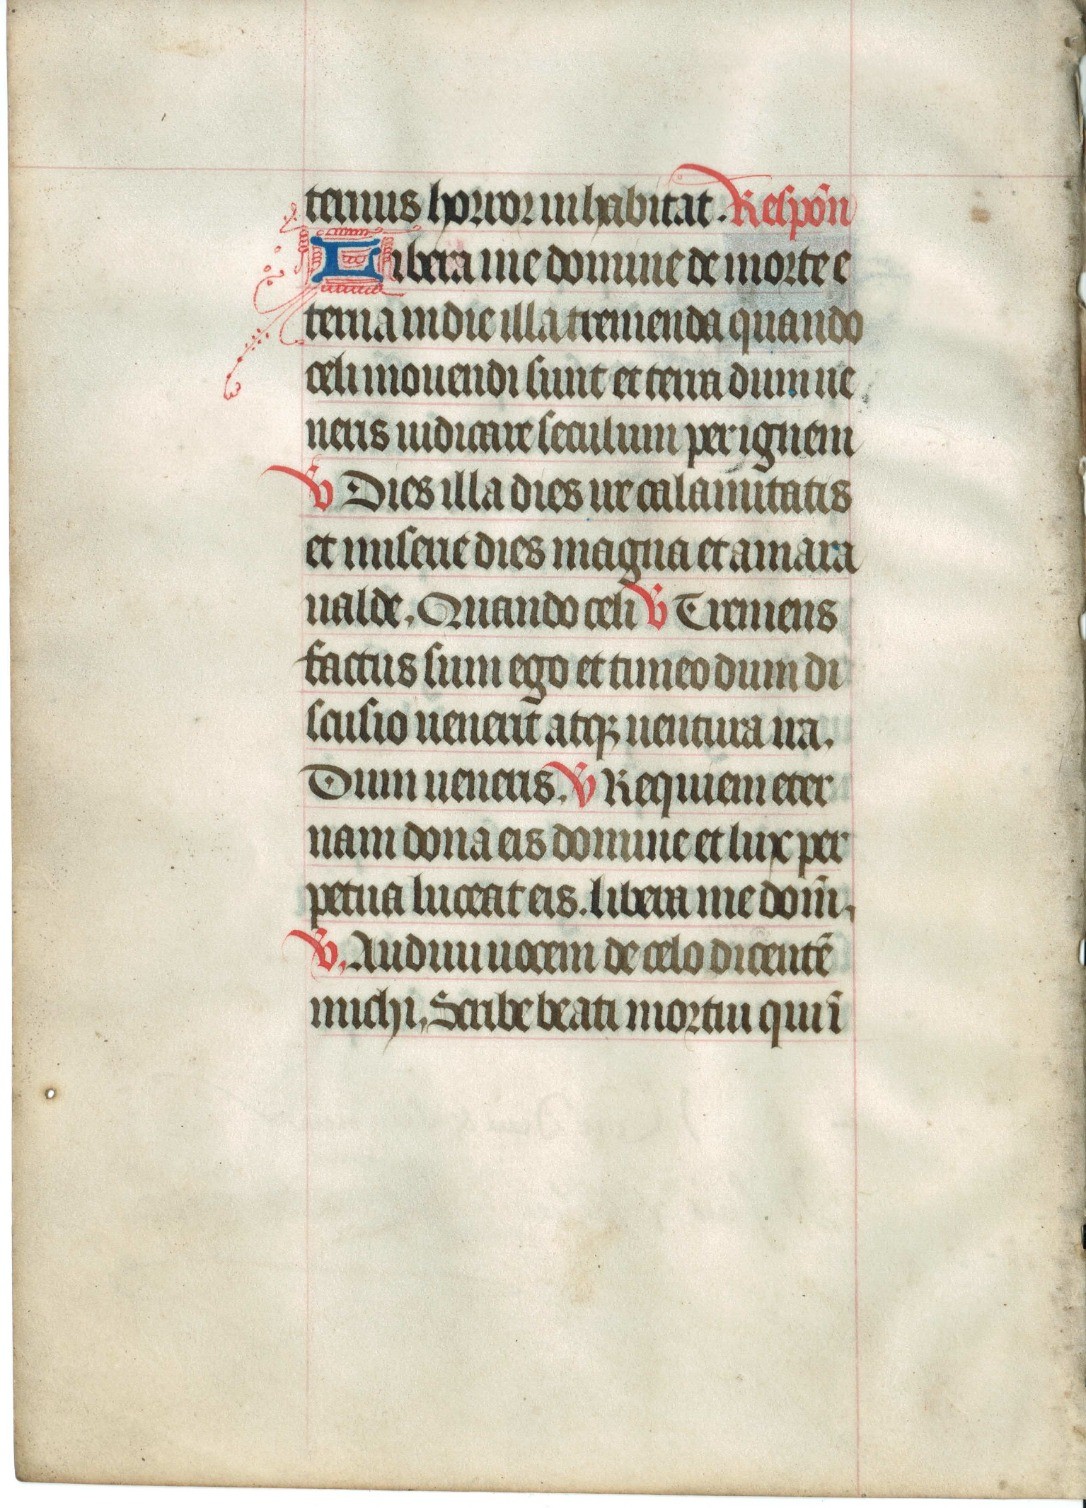 ternus horror inhabitat. Respōn
Libera me domine de morte e
terna in die illa tremenda quando
celi mouendi sunt et terra dum ue
neris iudicare seculum per ignem
℣ Dies illa dies ire calamitatis
et miserie dies magna et amara
ualde. Quando celi ℣ Tremens
factus sum ego et timeo dum di
scusio uenerit atqꝫ uentura ira.
Dum ueneris. ℣ Requiem eter
nam dona eis domine et lux per
petua luceat eis. libera me dom̄.
℣. Audiui uocem de celo dicentē
michi. Scribe beati mortui qui ī